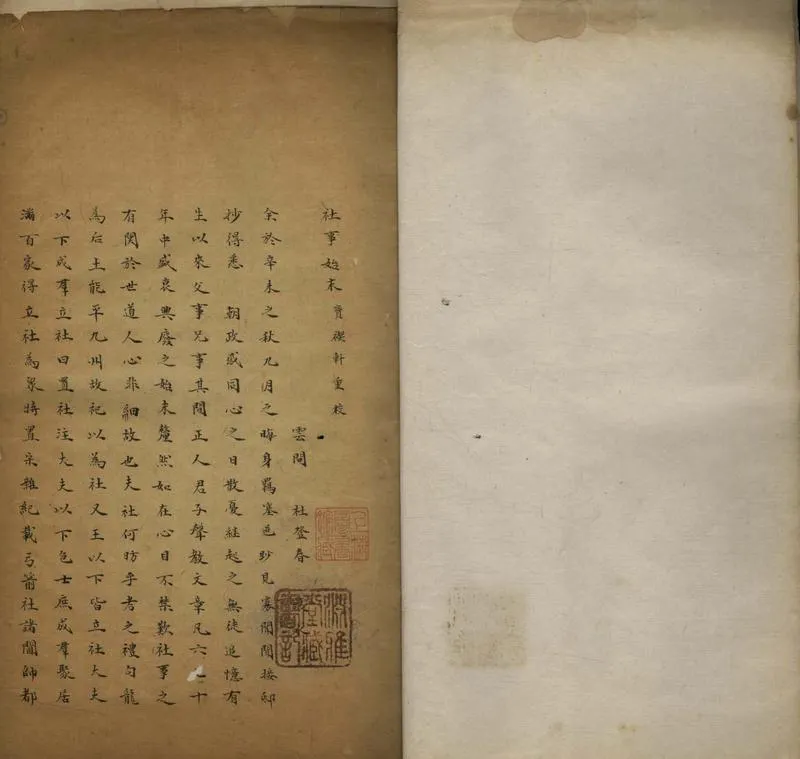 社事始末 寶禊軒重校
雲間 杜登春
余於辛未之秋九月之晦身羈塞邑眇見寡聞間接邸
抄得悉 朝政咸同心之日散憂繼起之無徒追憶有
生以來父事兄事其間正人君子聲教文章凡六七十
年中盛衰興廢之始末釐然如在心目不禁歎社事之
有関於世道人心非細故也夫社何昉乎考之禮句龍
為后土能平九州故祀以為社又王以下皆立社大夫
以下成羣立社曰置社注大夫以下包士庶成羣聚居
滿百家得立社為衆特置宋雜紀載弓箭社諸閫帥都